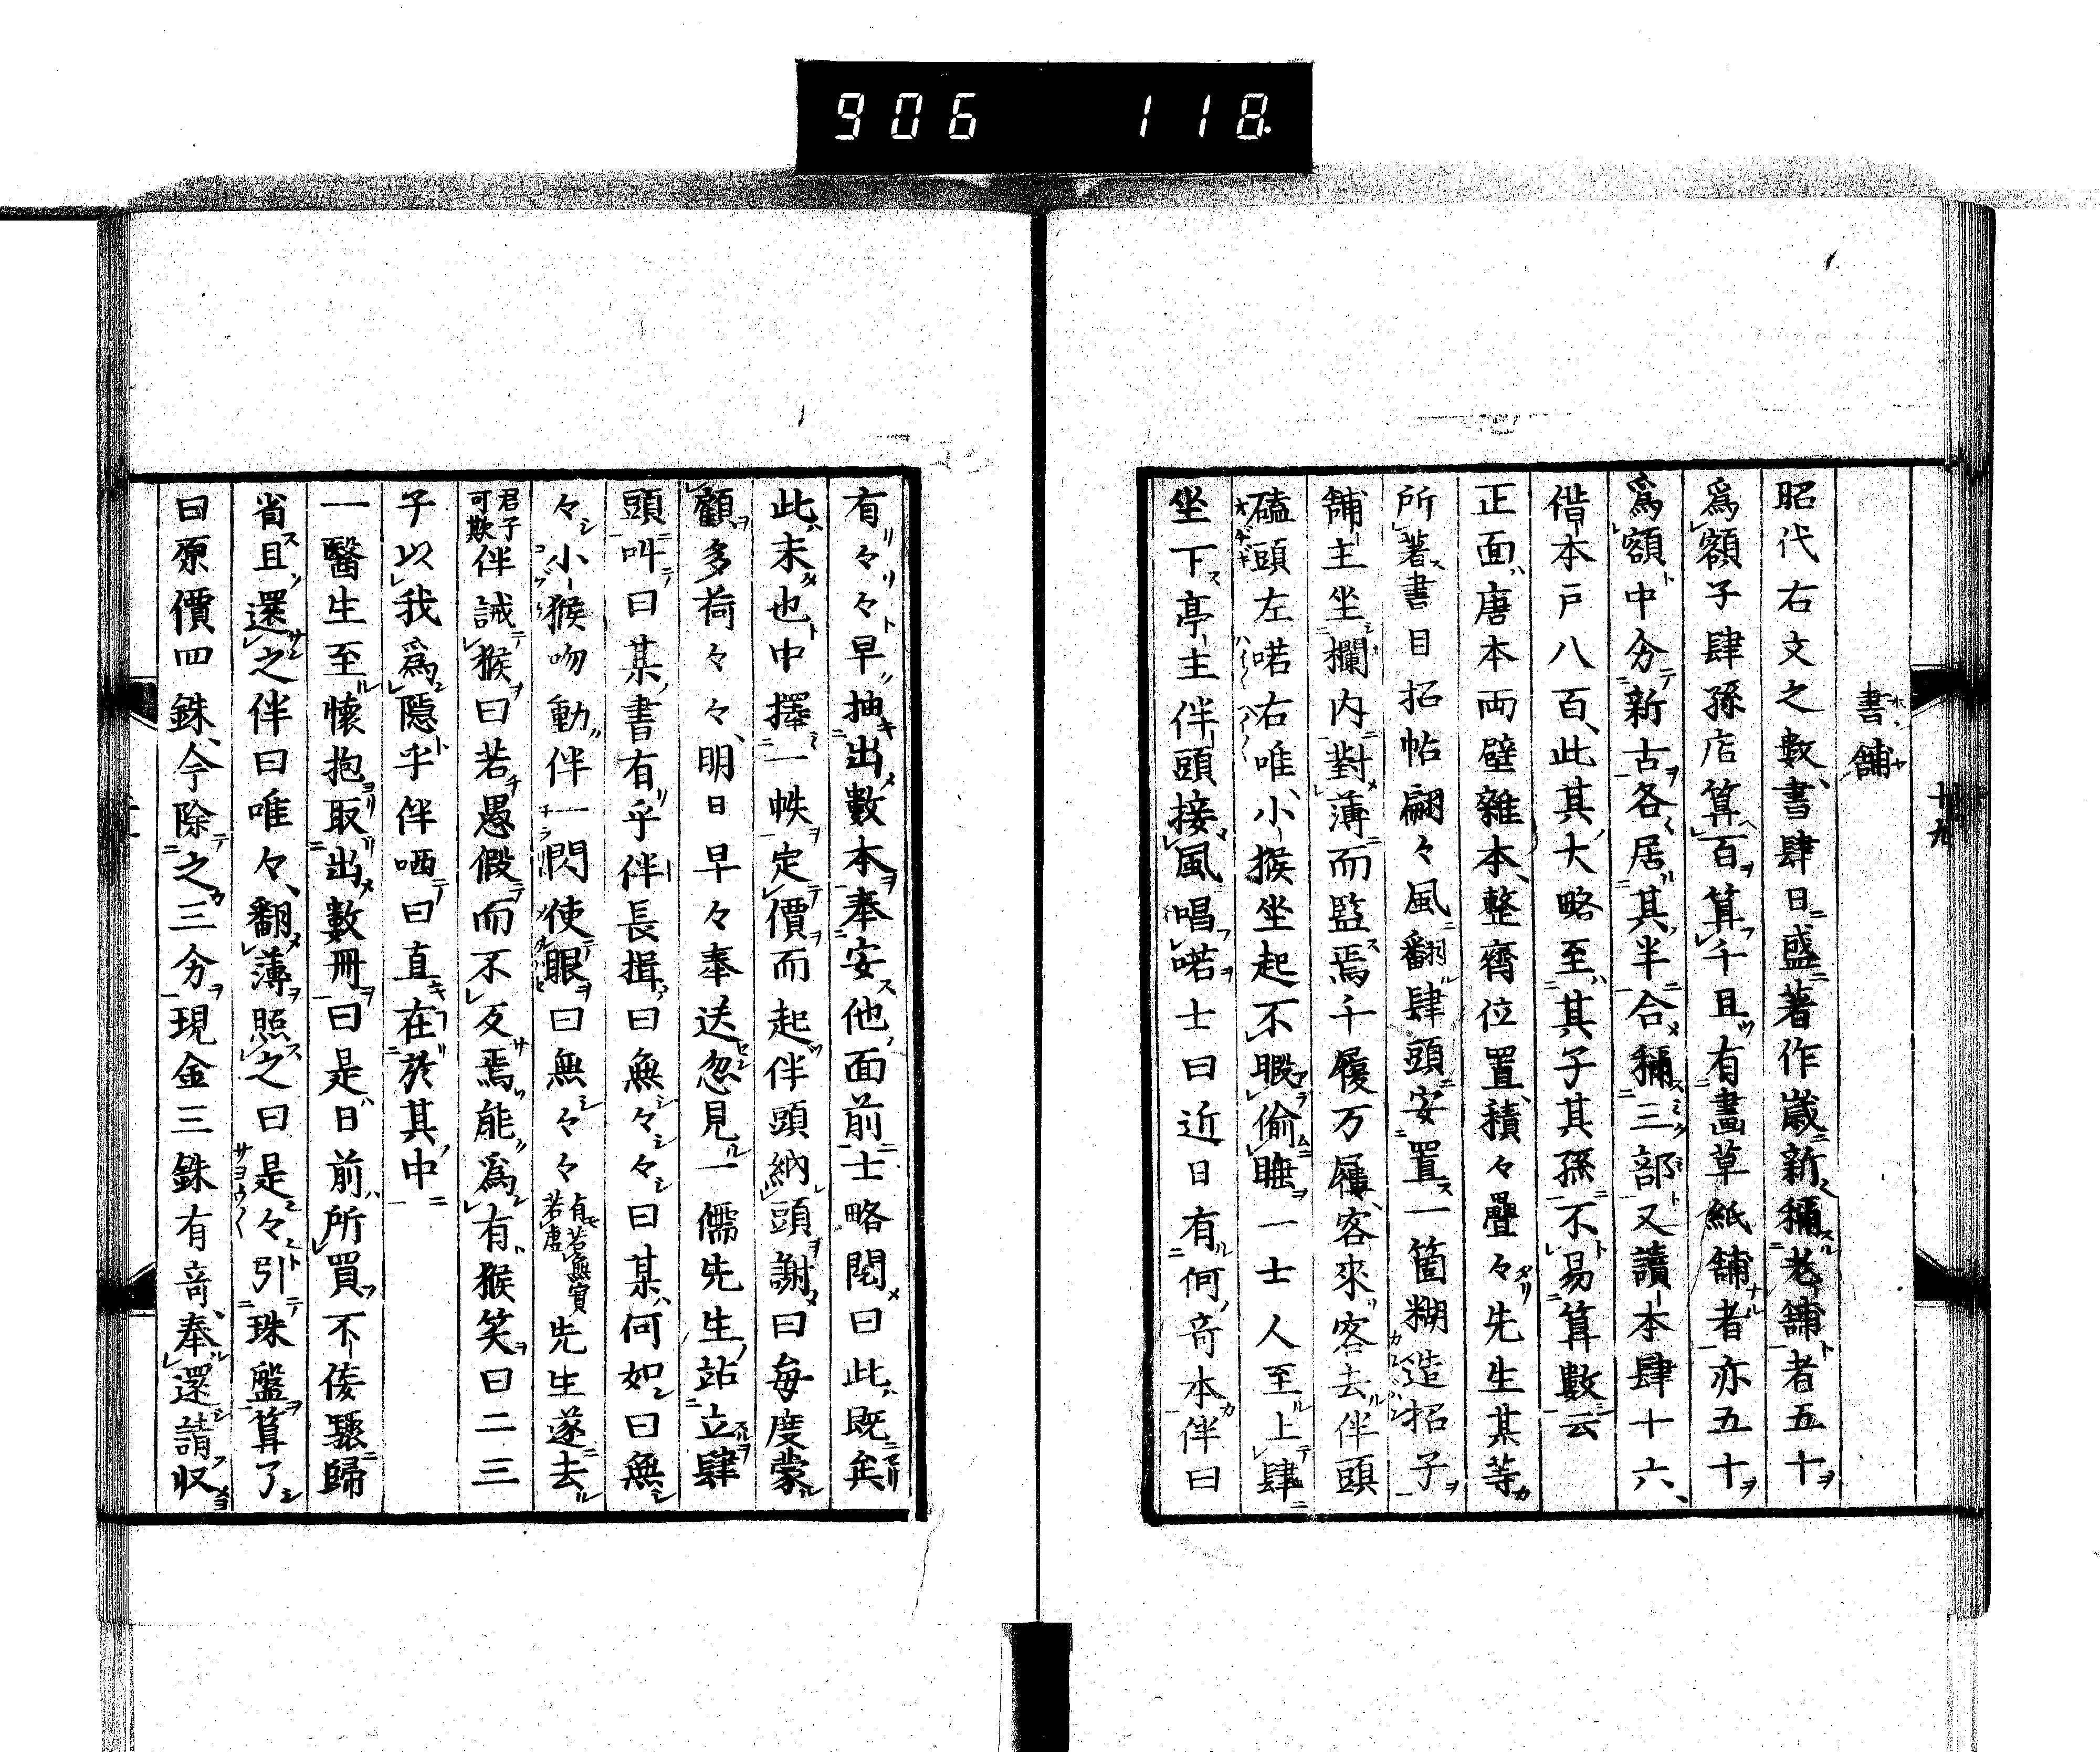 906 118
書舗
十九
昭代右文之數書肆日盛著作歲新稱老舖者五十
爲額子肆孫店算百算千且有畫草紙舖者亦五十
爲額中分新古各居其半合稱三部又讀本肆十六
偕本戸八百此其大略至其子其孫不易算數云
正面唐本両壁雜本整齊位置積々疊々先生某等
所著書目拓帖翩々風翻肆頭安置一箇糊造招子
舖主坐欄内對薄而監焉千履万屨客來客去伴頭
磕頭左喏右唯小猴坐起不暇偷睢一士人至上肆
坐下亭主伴頭接風唱喏士曰近日有何奇本伴曰
有々々早抽出數本奉安他面前士略閱曰此既矣
此未也中擇一帙定價而起伴頭納頭謝曰每度蒙
顧多荷々々明日早々奉送忽見一儒先生站立肆
頭叫曰某書有乎伴長揖曰無々々曰某何如曰無
々小猴吻動伴一閃使眼曰無々々有若無實若虛先生遂去
君子可欺伴誡猴曰若愚假而不反焉能爲有猴笑曰二三
子以我爲隱乎伴哂曰直在於其中
一醫生至懷抱取出數冊曰是日前所買不倭驅歸
省且還之伴曰唯々翻薄照之曰是々引珠盤算了
曰原價四銖今除之三分現金三銖有奇奉還請収